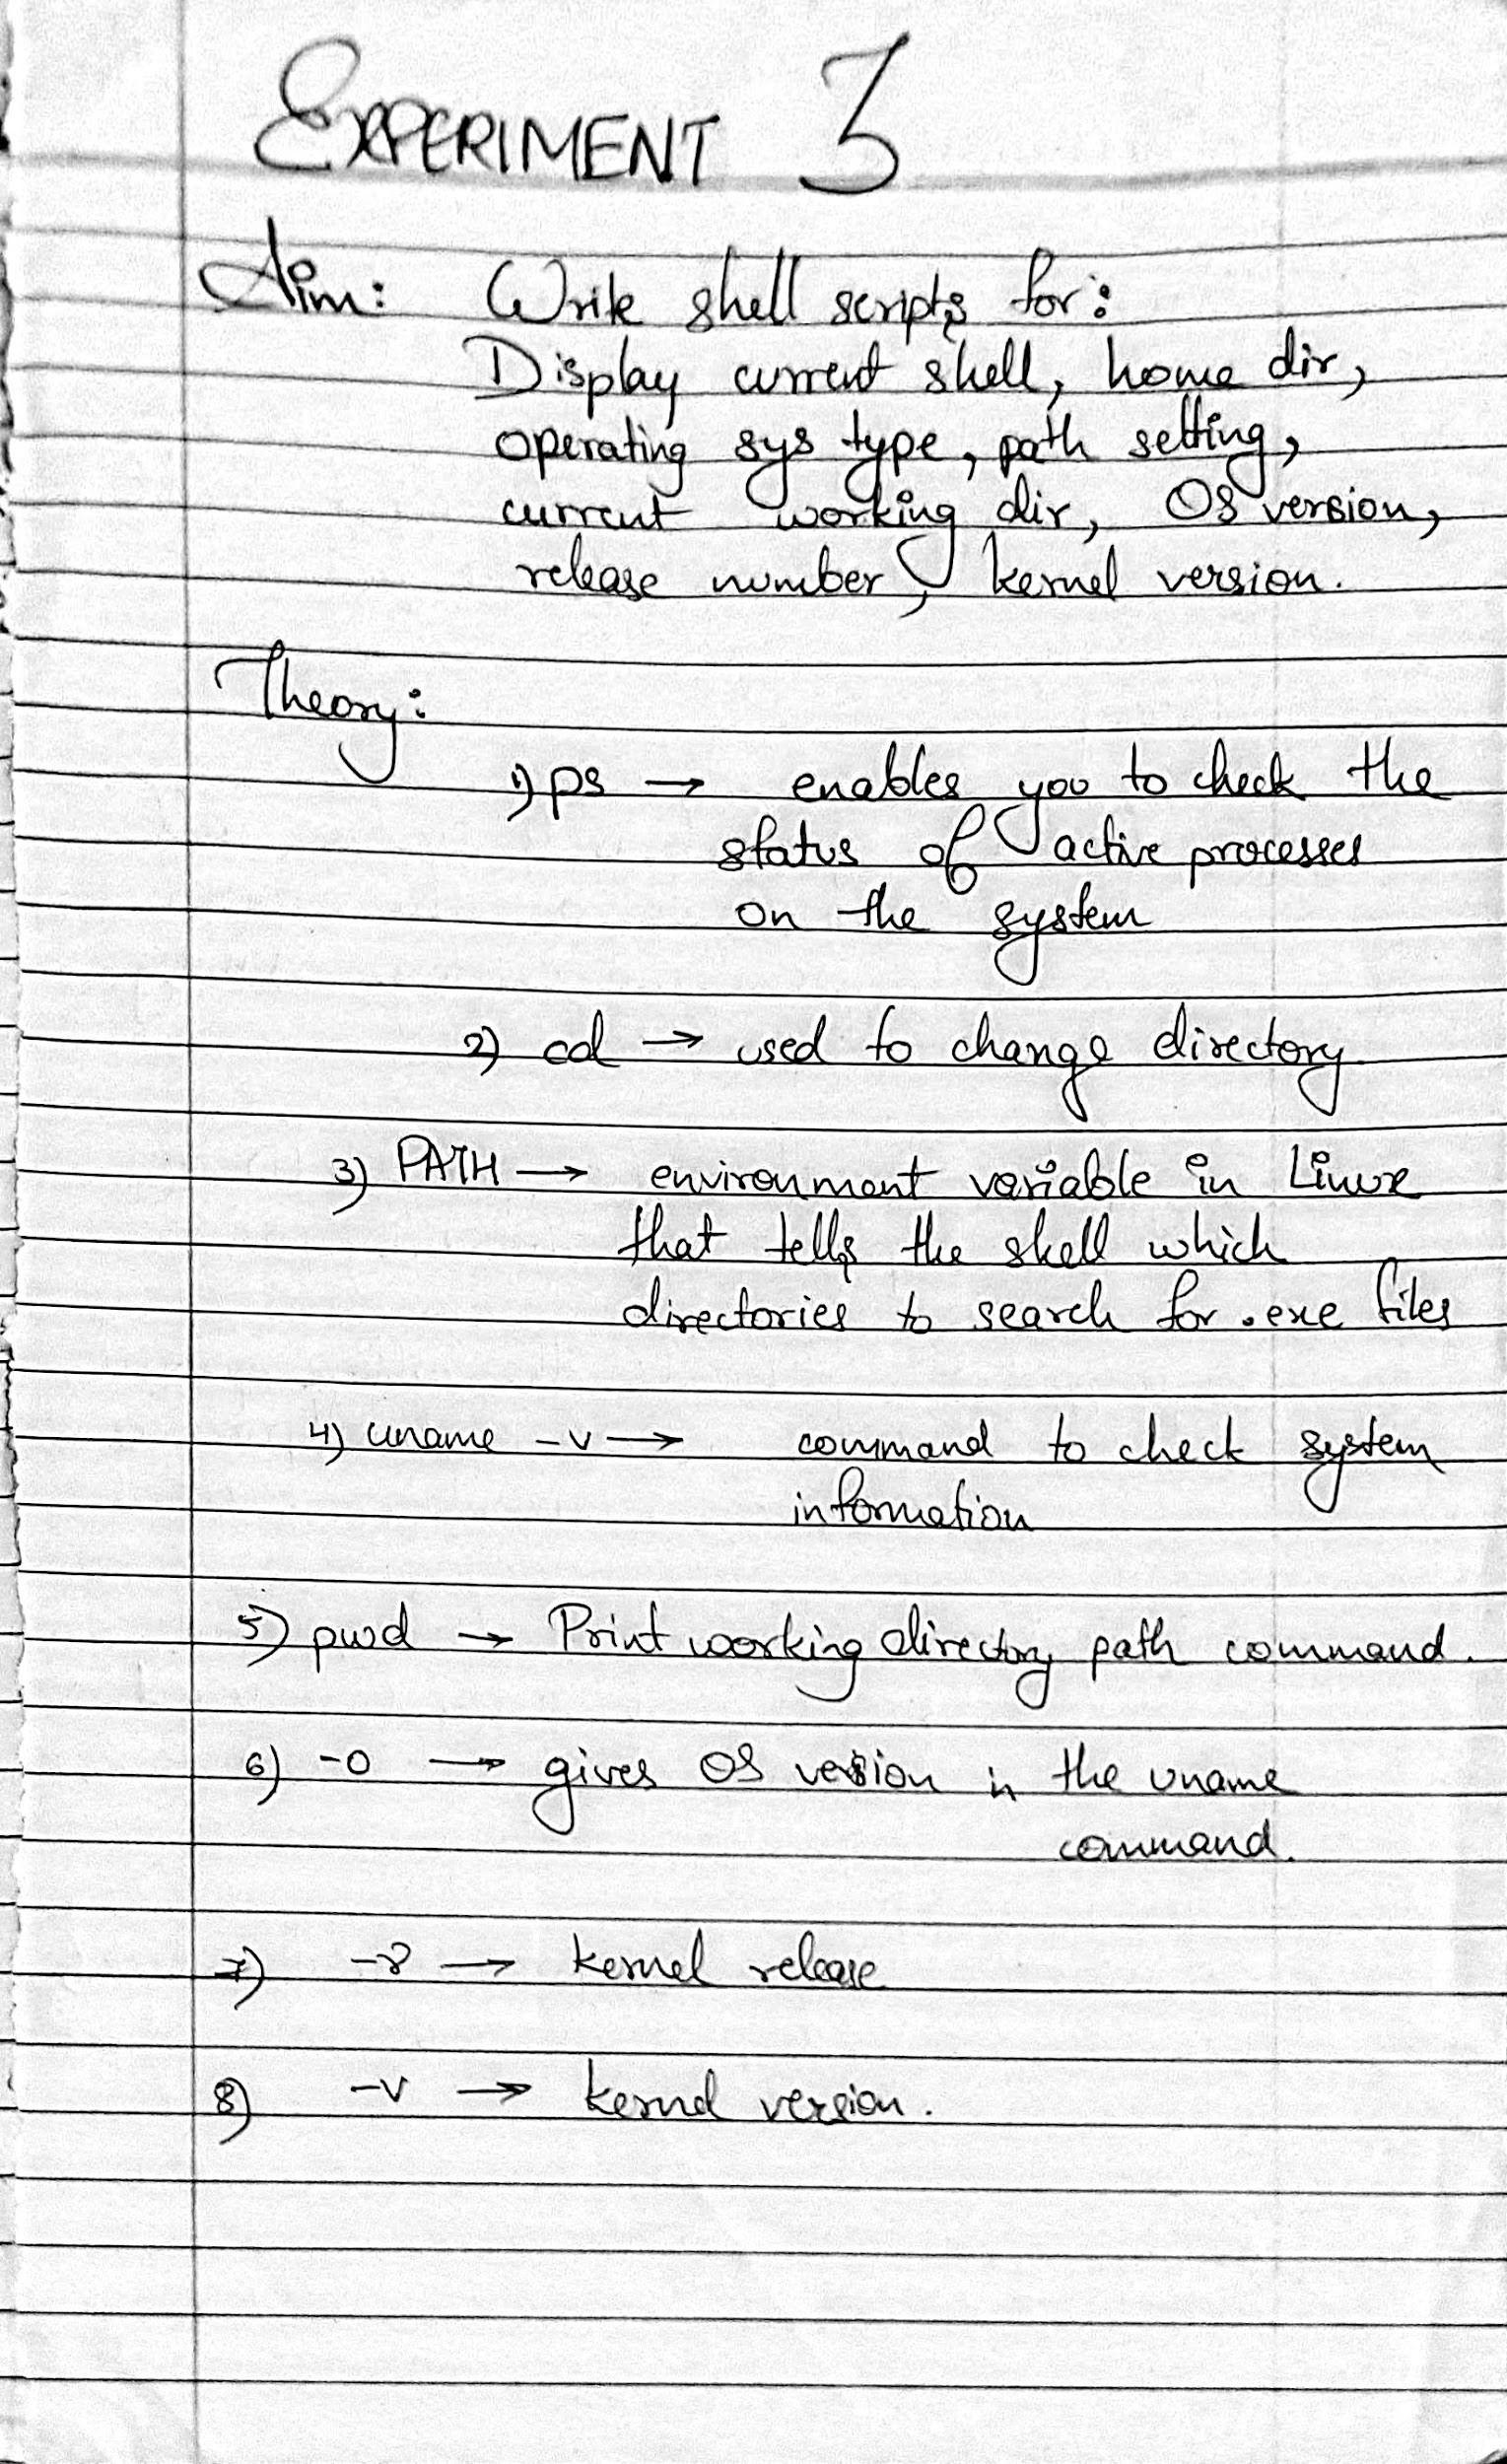 EXPERIMENT 3
Aim: Write shell scripts for:
Display current shell, home dir,
operating sys type, path setting,
current working dir, OS version,
release number, kernel version.
Theory:
1) ps → enables you to check the
status of active processes
on the system
2) cd → used to change directory
3) PATH → environment variable in Linux
that tells the shell which
directories to search for .exe files
4) uname -v → command to check system
information
5) pwd → Print working directory path command.
6) -o → gives OS version in the uname
command.
7) -r → kernel release
8) -v → kernel version.